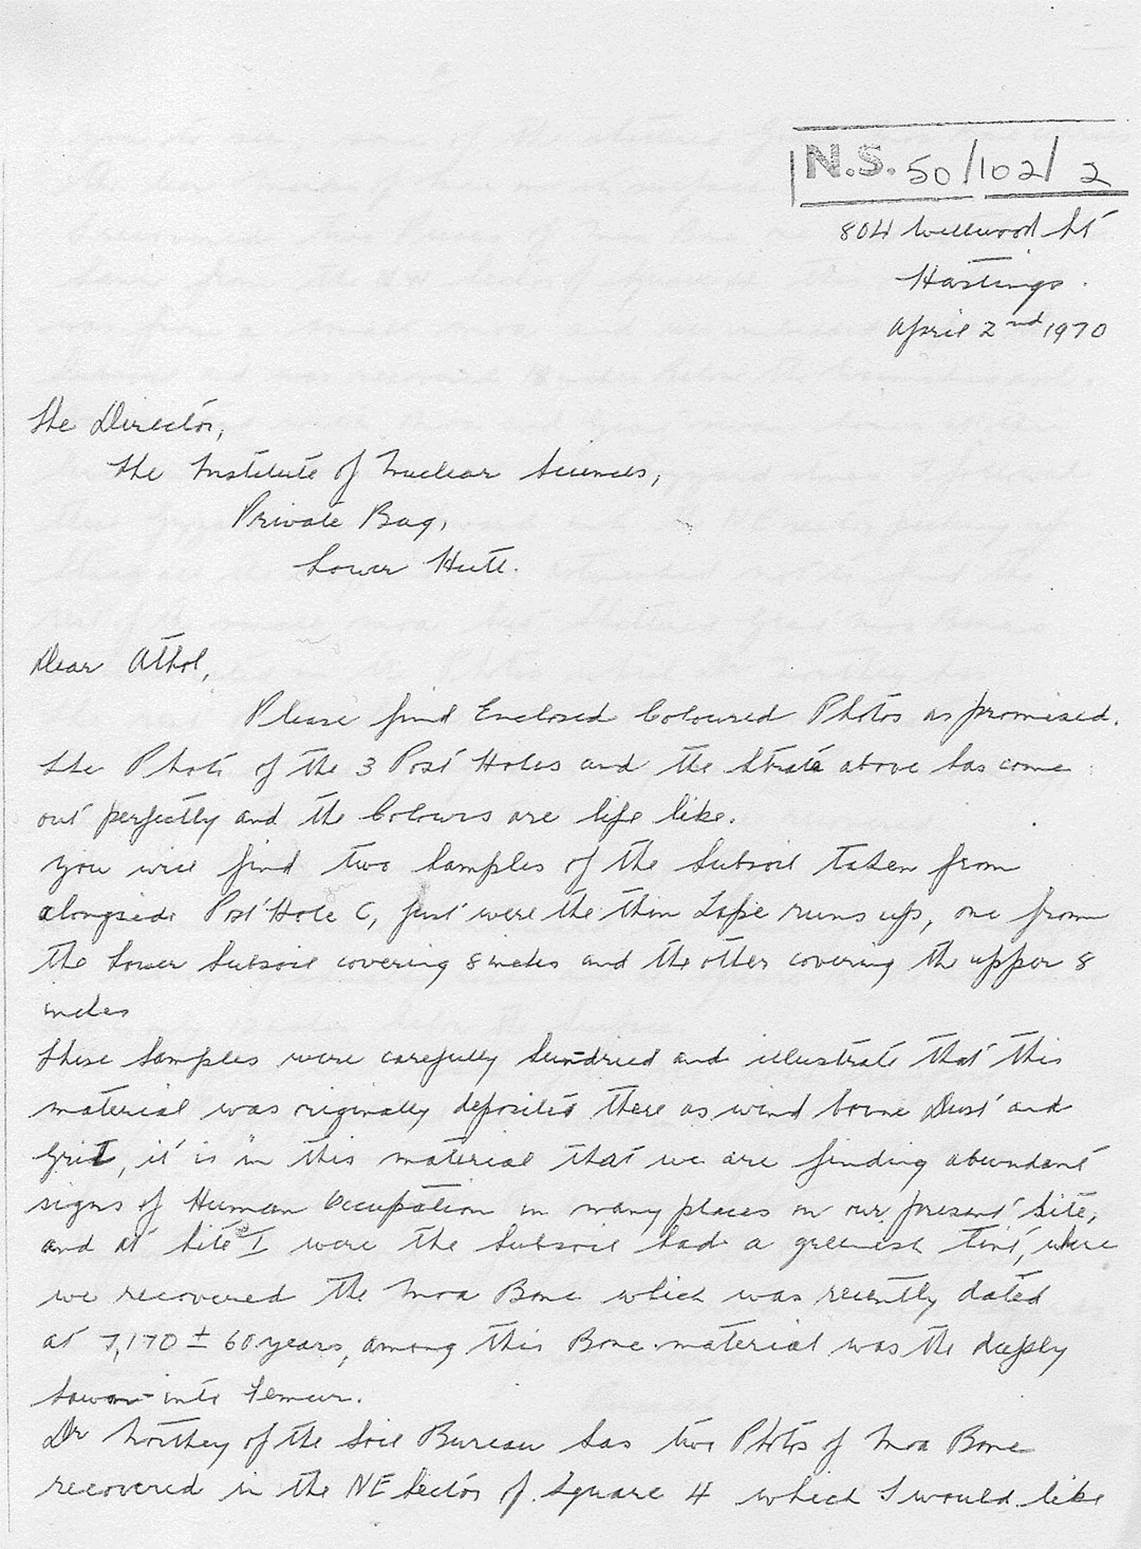 N.S. 50/102/2
804 Wellwood St
Hastings.
April 2nd 1970
The Director,
The Institute of Nuclear Sciences,
Private Bag,
Lower Hutt.
Dear Athol,
Please find Enclosed Coloured Photos as promised.
The Photo of the 3 Post Holes and the Strata above has come
out perfectly and the Colours are life like.
You will find two Samples of the Subsoil taken from
alongside Post Hole C, just were the thin Lape runs up, one from
the Lower Subsoil covering 8 inches and the other covering the upper 8
inches
These Samples were carefully Sundried and illustrate that this
material was originally deposited there as wind borne Dust and
Grit, it is in this material that we are finding abundant
signs of Human Occupation in many places on our present Site,
and at Site I were the Subsoil had a greenish tint, where
we recovered the Moa Bone which was recently dated
at 7,170 ± 60 years, among this Bone material was the deeply
Sawn into Femur.
Dr Northey of the Soil Bureau has two Photos of Moa Bone
recovered in the NE Sector of Square 4 which I would like